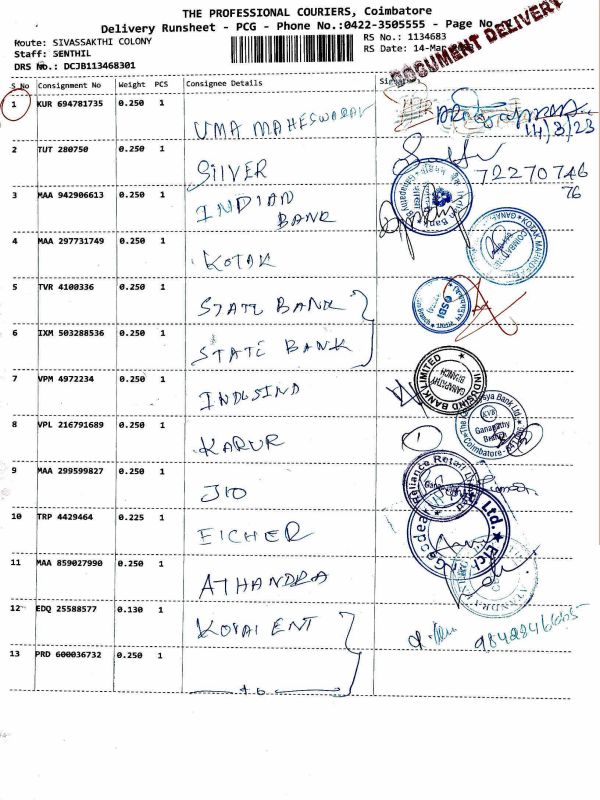 THE PROFESSIONAL COURIERS, Coimbatore
Delivery Runsheet - PCG - Phone No.:0422-3505555 - Page No.
Route: SIVASSAKTHI COLONY
Staff: SENTHIL
DRS No.: DCJB113468301
RS No.: 1134683
RS Date: 14-Mar
DOCUMENT DELIVERY
S No Consignment No Weight PCS Consignee Details
1 KUR 694781735 0.250 1 UMA MAHESWARAN
14/3/23
2 TUT 280750 0.250 1 SILVER
72270746
76
3 MAA 942906613 0.250 1 INDIAN
BANK
4 MAA 297731749 0.250 1 KOTAK
KOTAK MAHINDRA
COIMBATORE
5 TVR 4100336 0.250 1 STATE BANK
SBI
6 IXM 503288536 0.250 1 STATE BANK
7 VPM 4972234 0.250 1 INDUSIND
INDUSIND BANK LIMITED
GANAPATHY
BRANCH
8 VPL 216791689 0.250 1 KARUR
KVB
Ganapathy
Branch
9 MAA 299599827 0.250 1 JIO
Reliance Retail
10 TRP 4429464 0.225 1 EICHER
11 MAA 859027990 0.250 1 ATHANDRA
12 EDQ 25588577 0.130 1 KOVAI ENT
13 PRD 600036732 0.250 1